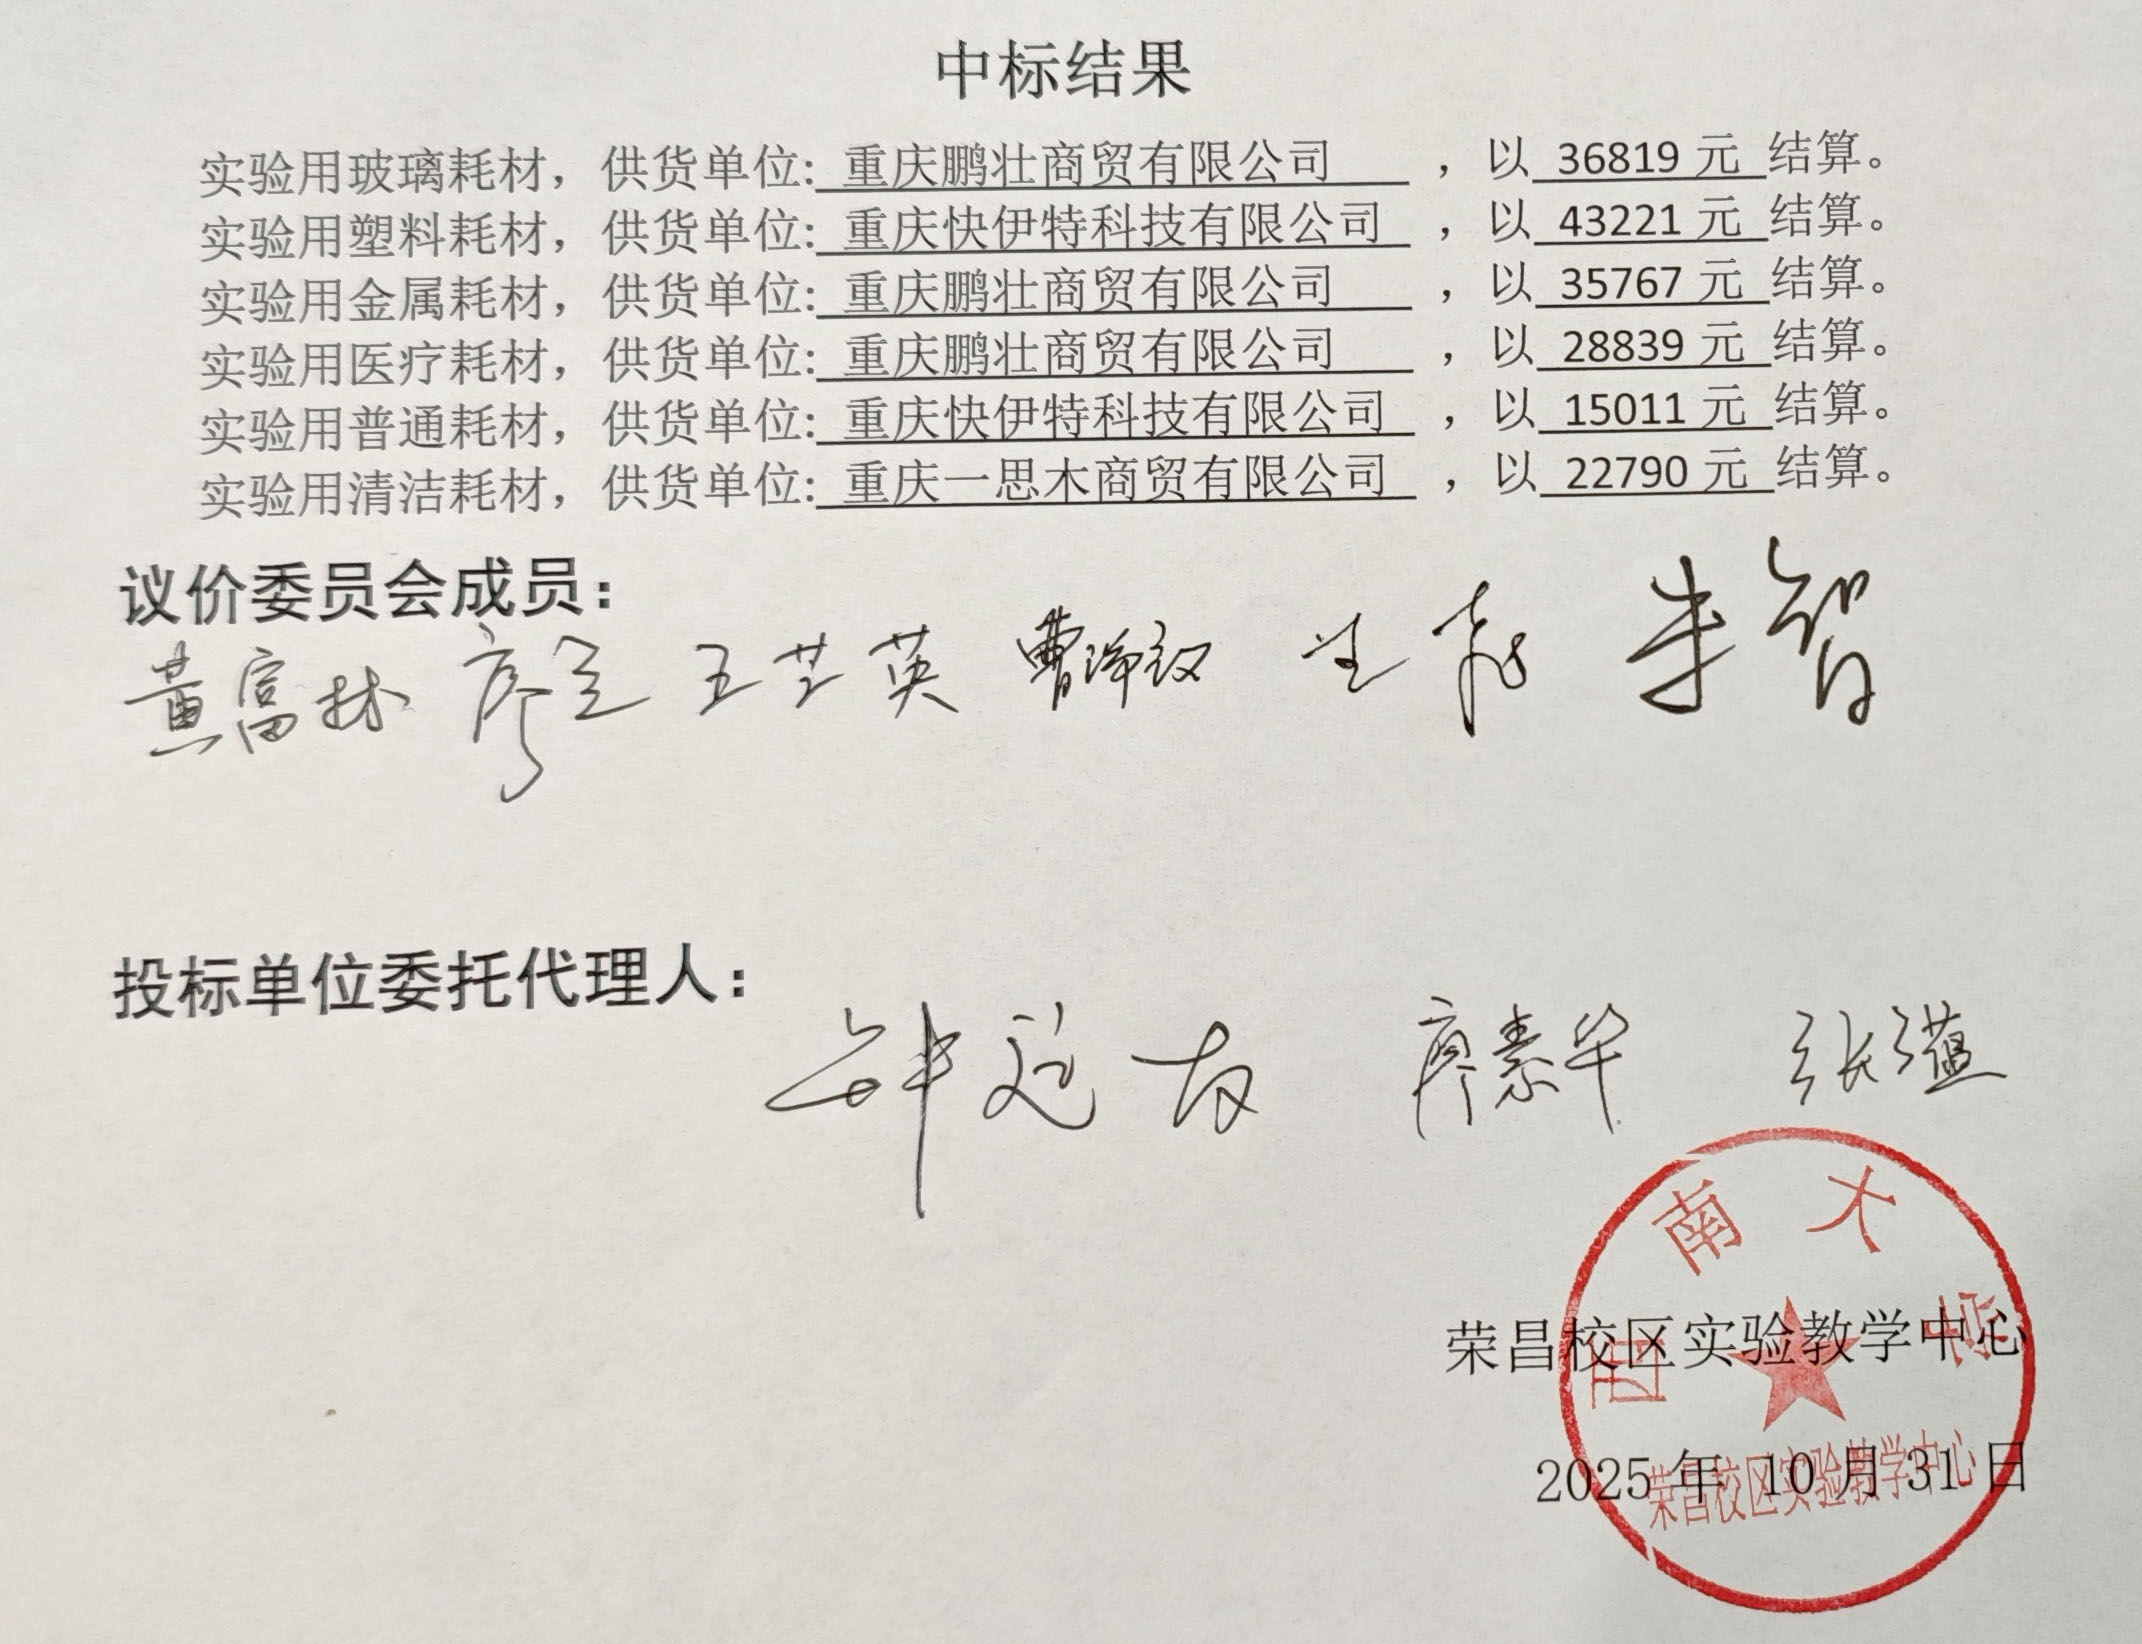 中标结果
实验用玻璃耗材，供货单位: 重庆鹏壮商贸有限公司 ，以 36819 元 结算。
实验用塑料耗材，供货单位: 重庆快伊特科技有限公司 ，以 43221 元 结算。
实验用金属耗材，供货单位: 重庆鹏壮商贸有限公司 ，以 35767 元 结算。
实验用医疗耗材，供货单位: 重庆鹏壮商贸有限公司 ，以 28839 元 结算。
实验用普通耗材，供货单位: 重庆快伊特科技有限公司 ，以 15011 元 结算。
实验用清洁耗材，供货单位: 重庆一思木商贸有限公司 ，以 22790 元 结算。
议价委员会成员：
黄富林 廖 王芝英 曹 朱智
投标单位委托代理人：
廖素华 张蕴
西南大学
荣昌校区实验教学中心
2025 年 10 月 31 日
荣昌校区实验教学中心